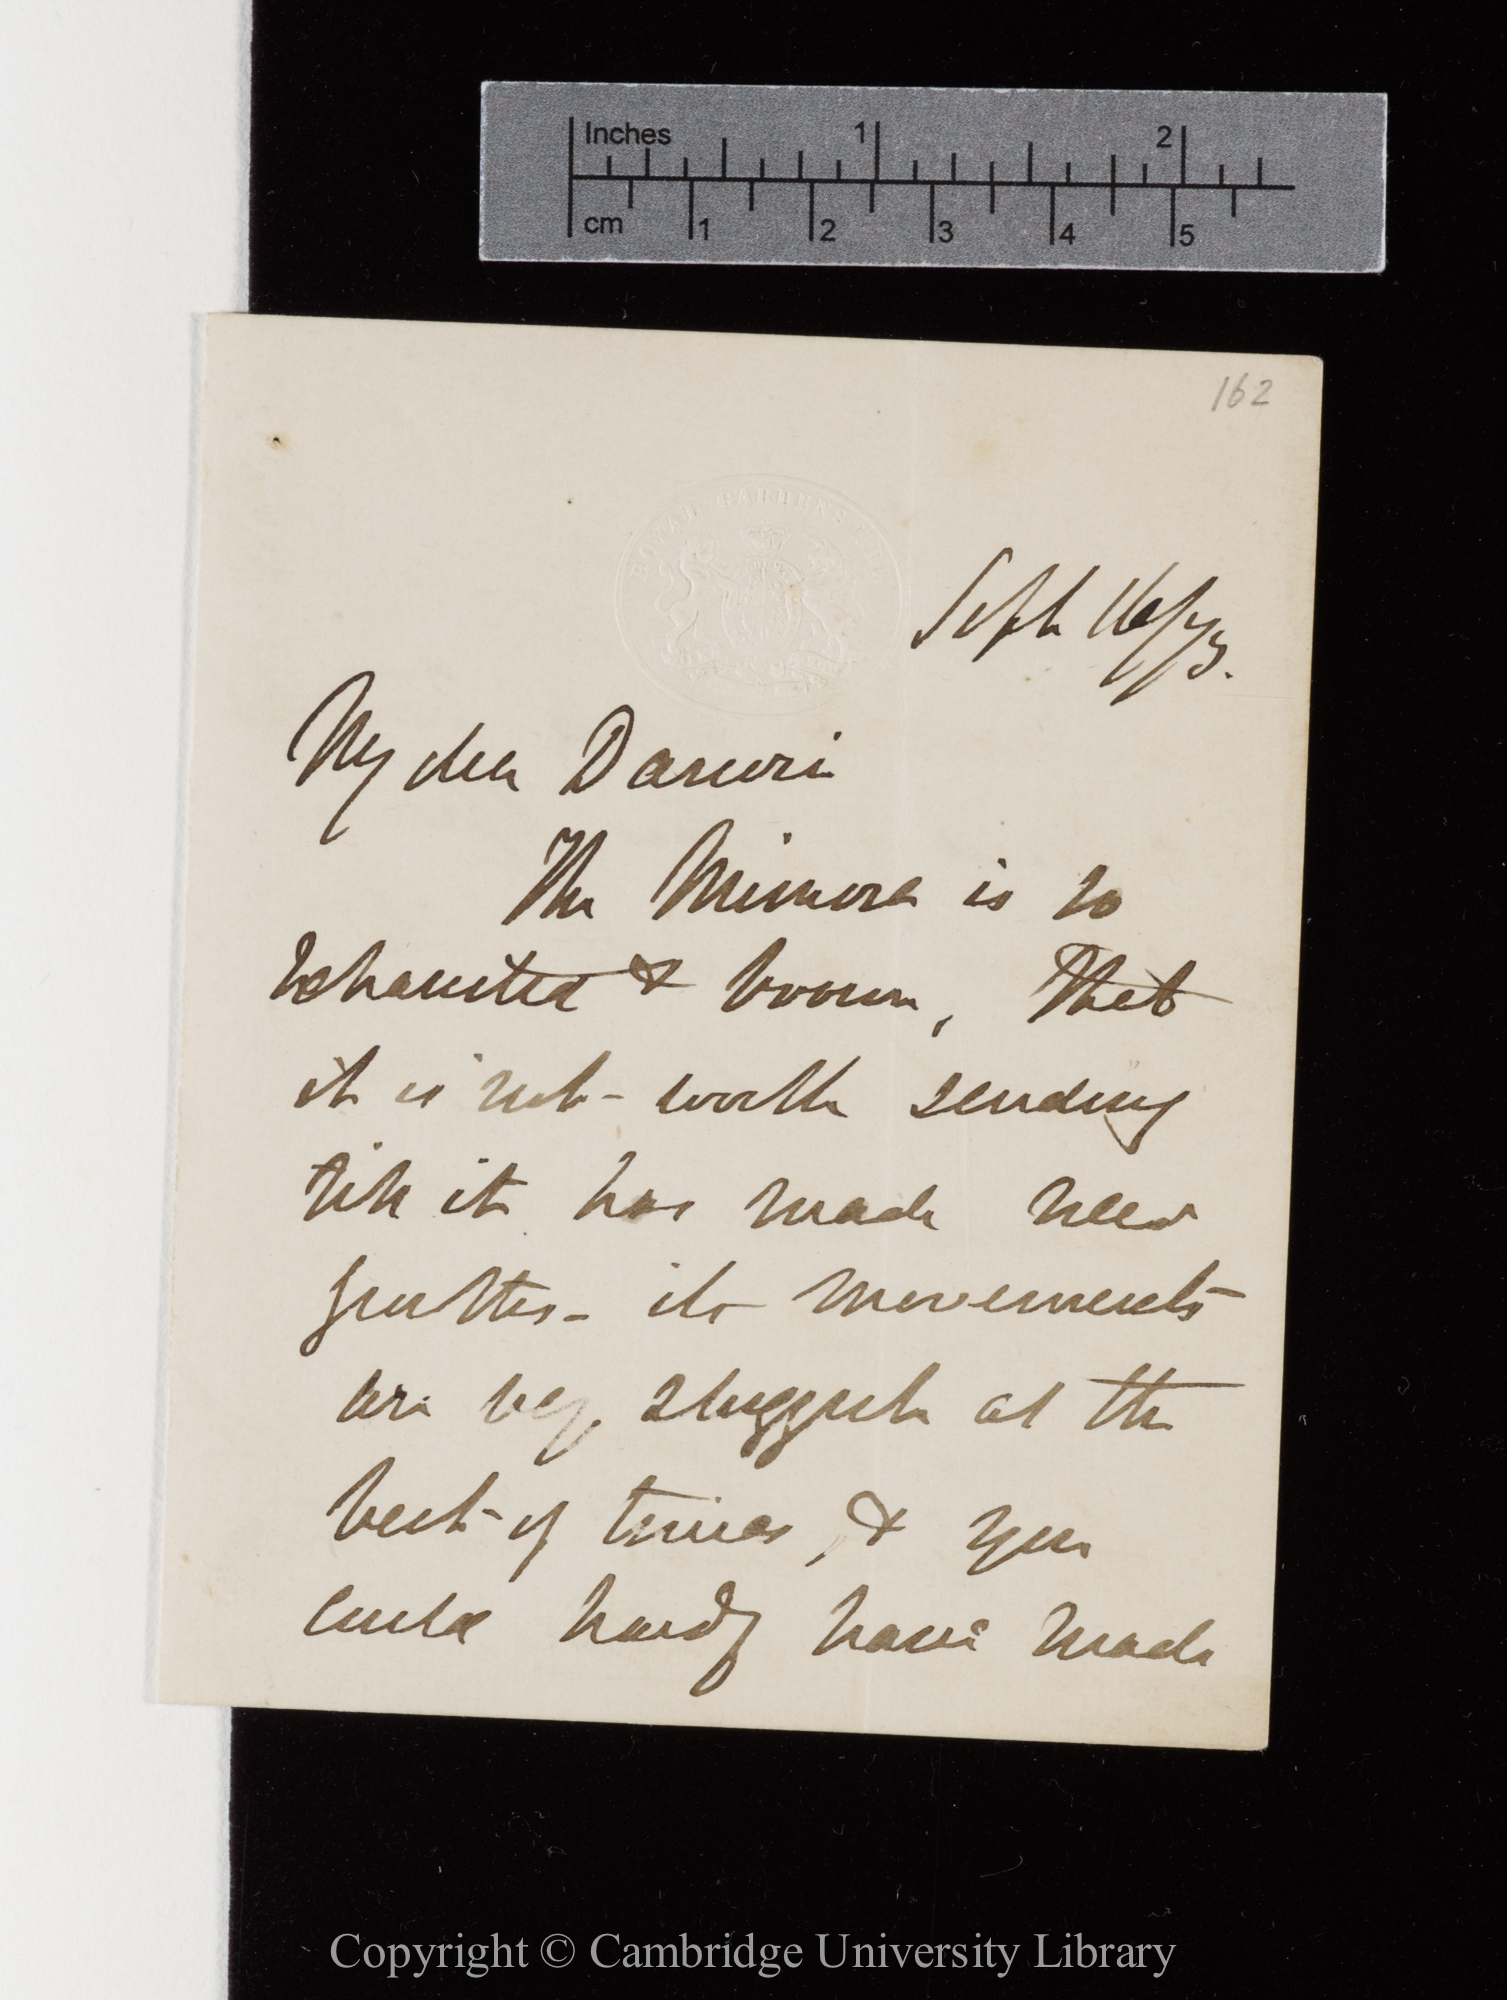 Inches 1 2
cm 1 2 3 4 5
162
ROYAL GARDENS KEW
Sept 16/73.
My dear Darwin
The Mimosa is so
exhausted & brown, that
it is not worth sending
till it has made new
growths— its movements
are very sluggish at the
best of times, & you
could hardly have made
Copyright © Cambridge University Library